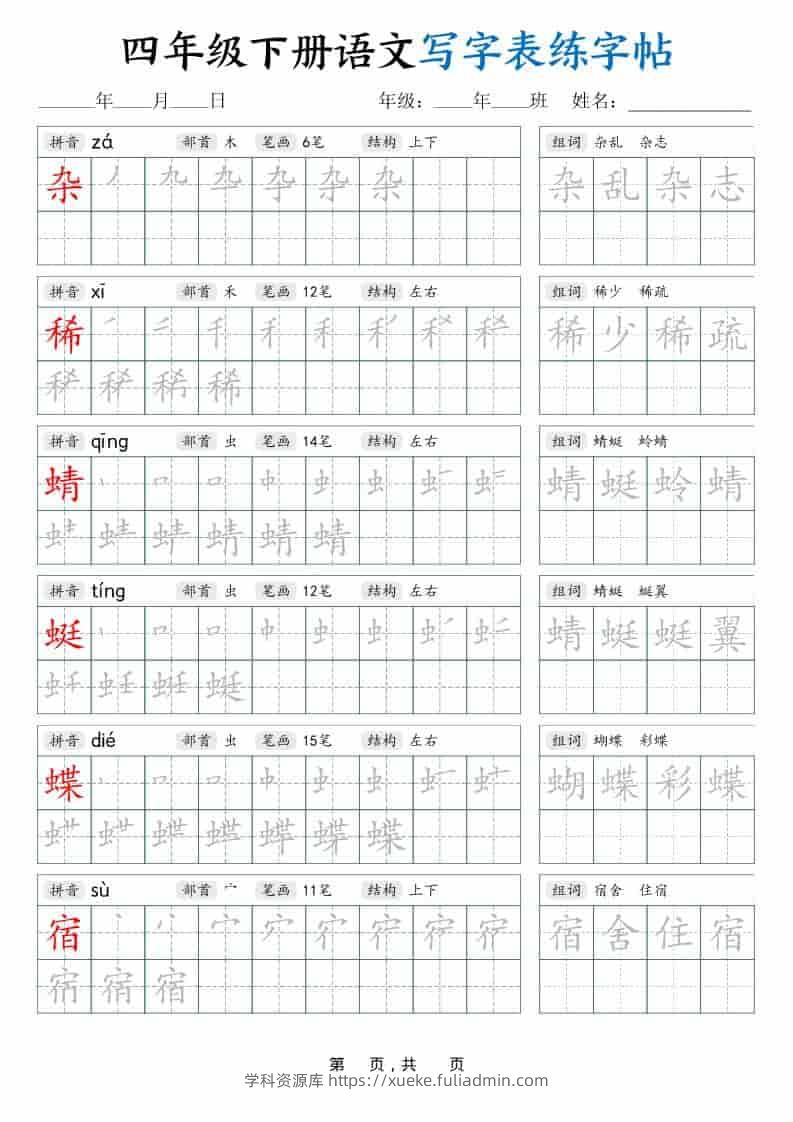 四年级下册语文写字表练字帖
______年____月____日 年级：____年____班 姓名：____________
拼音 zá 部首 木 笔画 6笔 结构 上下 组词 杂乱 杂志
杂 杂 杂 乱 杂 志
拼音 xī 部首 禾 笔画 12笔 结构 左右 组词 稀少 稀疏
稀 稀 少 稀 疏
稀
拼音 qīng 部首 虫 笔画 14笔 结构 左右 组词 蜻蜓 蛉蜻
蜻 蜻 蜓 蛉 蜻
蜻
拼音 tíng 部首 虫 笔画 12笔 结构 左右 组词 蜻蜓 蜓翼
蜓 蜻 蜓 蜓 翼
蜓
拼音 dié 部首 虫 笔画 15笔 结构 左右 组词 蝴蝶 彩蝶
蝶 蝴 蝶 彩 蝶
蝶
拼音 sù 部首 宀 笔画 11笔 结构 上下 组词 宿舍 住宿
宿 宿 舍 住 宿
宿
第 页，共 页
学科资源库 https://xueke.fuliadmin.com